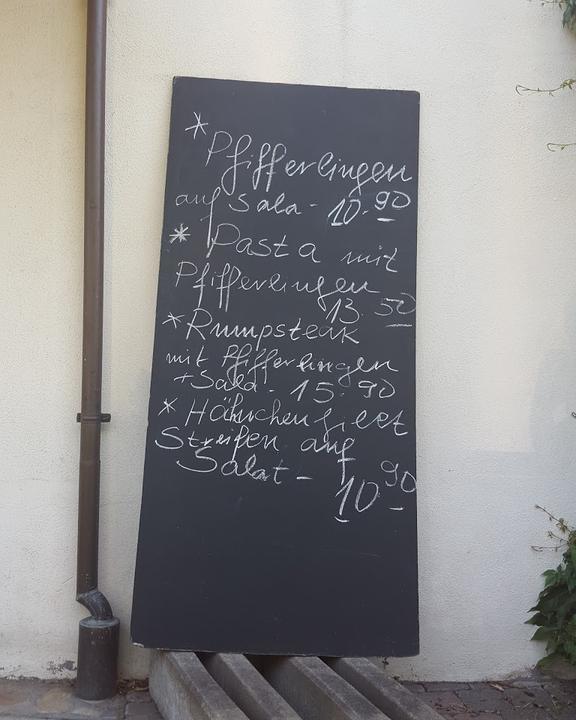 * Pfifferlingen
auf Sala - 10.90
* Pasta mit
Pfifferlingen
13.50
* Rumpsteak
mit Pfifferlingen
+ Sala - 15.90
* Hähnchenfilet
Streifen auf
Salat - 10.90